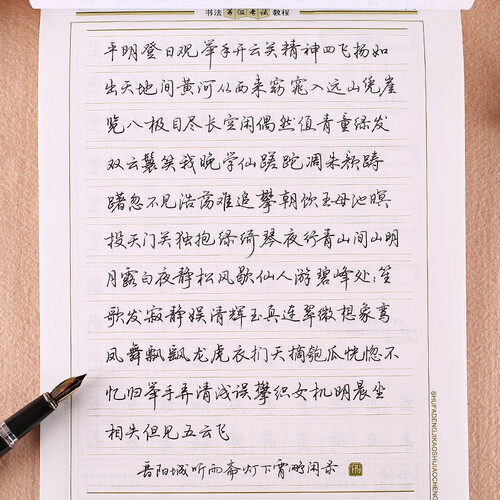 书法等级考试教程
平明登日观举手开云关精神四飞扬如
出天地间黄河从西来窈窕入远山凭崖
览八极目尽长空闲偶然值青童绿发
双云鬟笑我晚学仙蹉跎凋朱颜踌
躇忽不见浩荡难追攀朝饮王母池暝
投天门关独抱绿绮琴夜行青山间山明
月露白夜静松风歇仙人游碧峰处处笙
歌发寂静娱清辉玉真连翠微想象鸾
凤舞飘飘龙虎衣扪天摘匏瓜恍惚不
忆归举手弄清浅误攀织女机明晨坐
相失但见五云飞
晋阳城听雨斋灯下宵鹏闲录
SHUFADENGJIKAOSHIJIAOCHENG